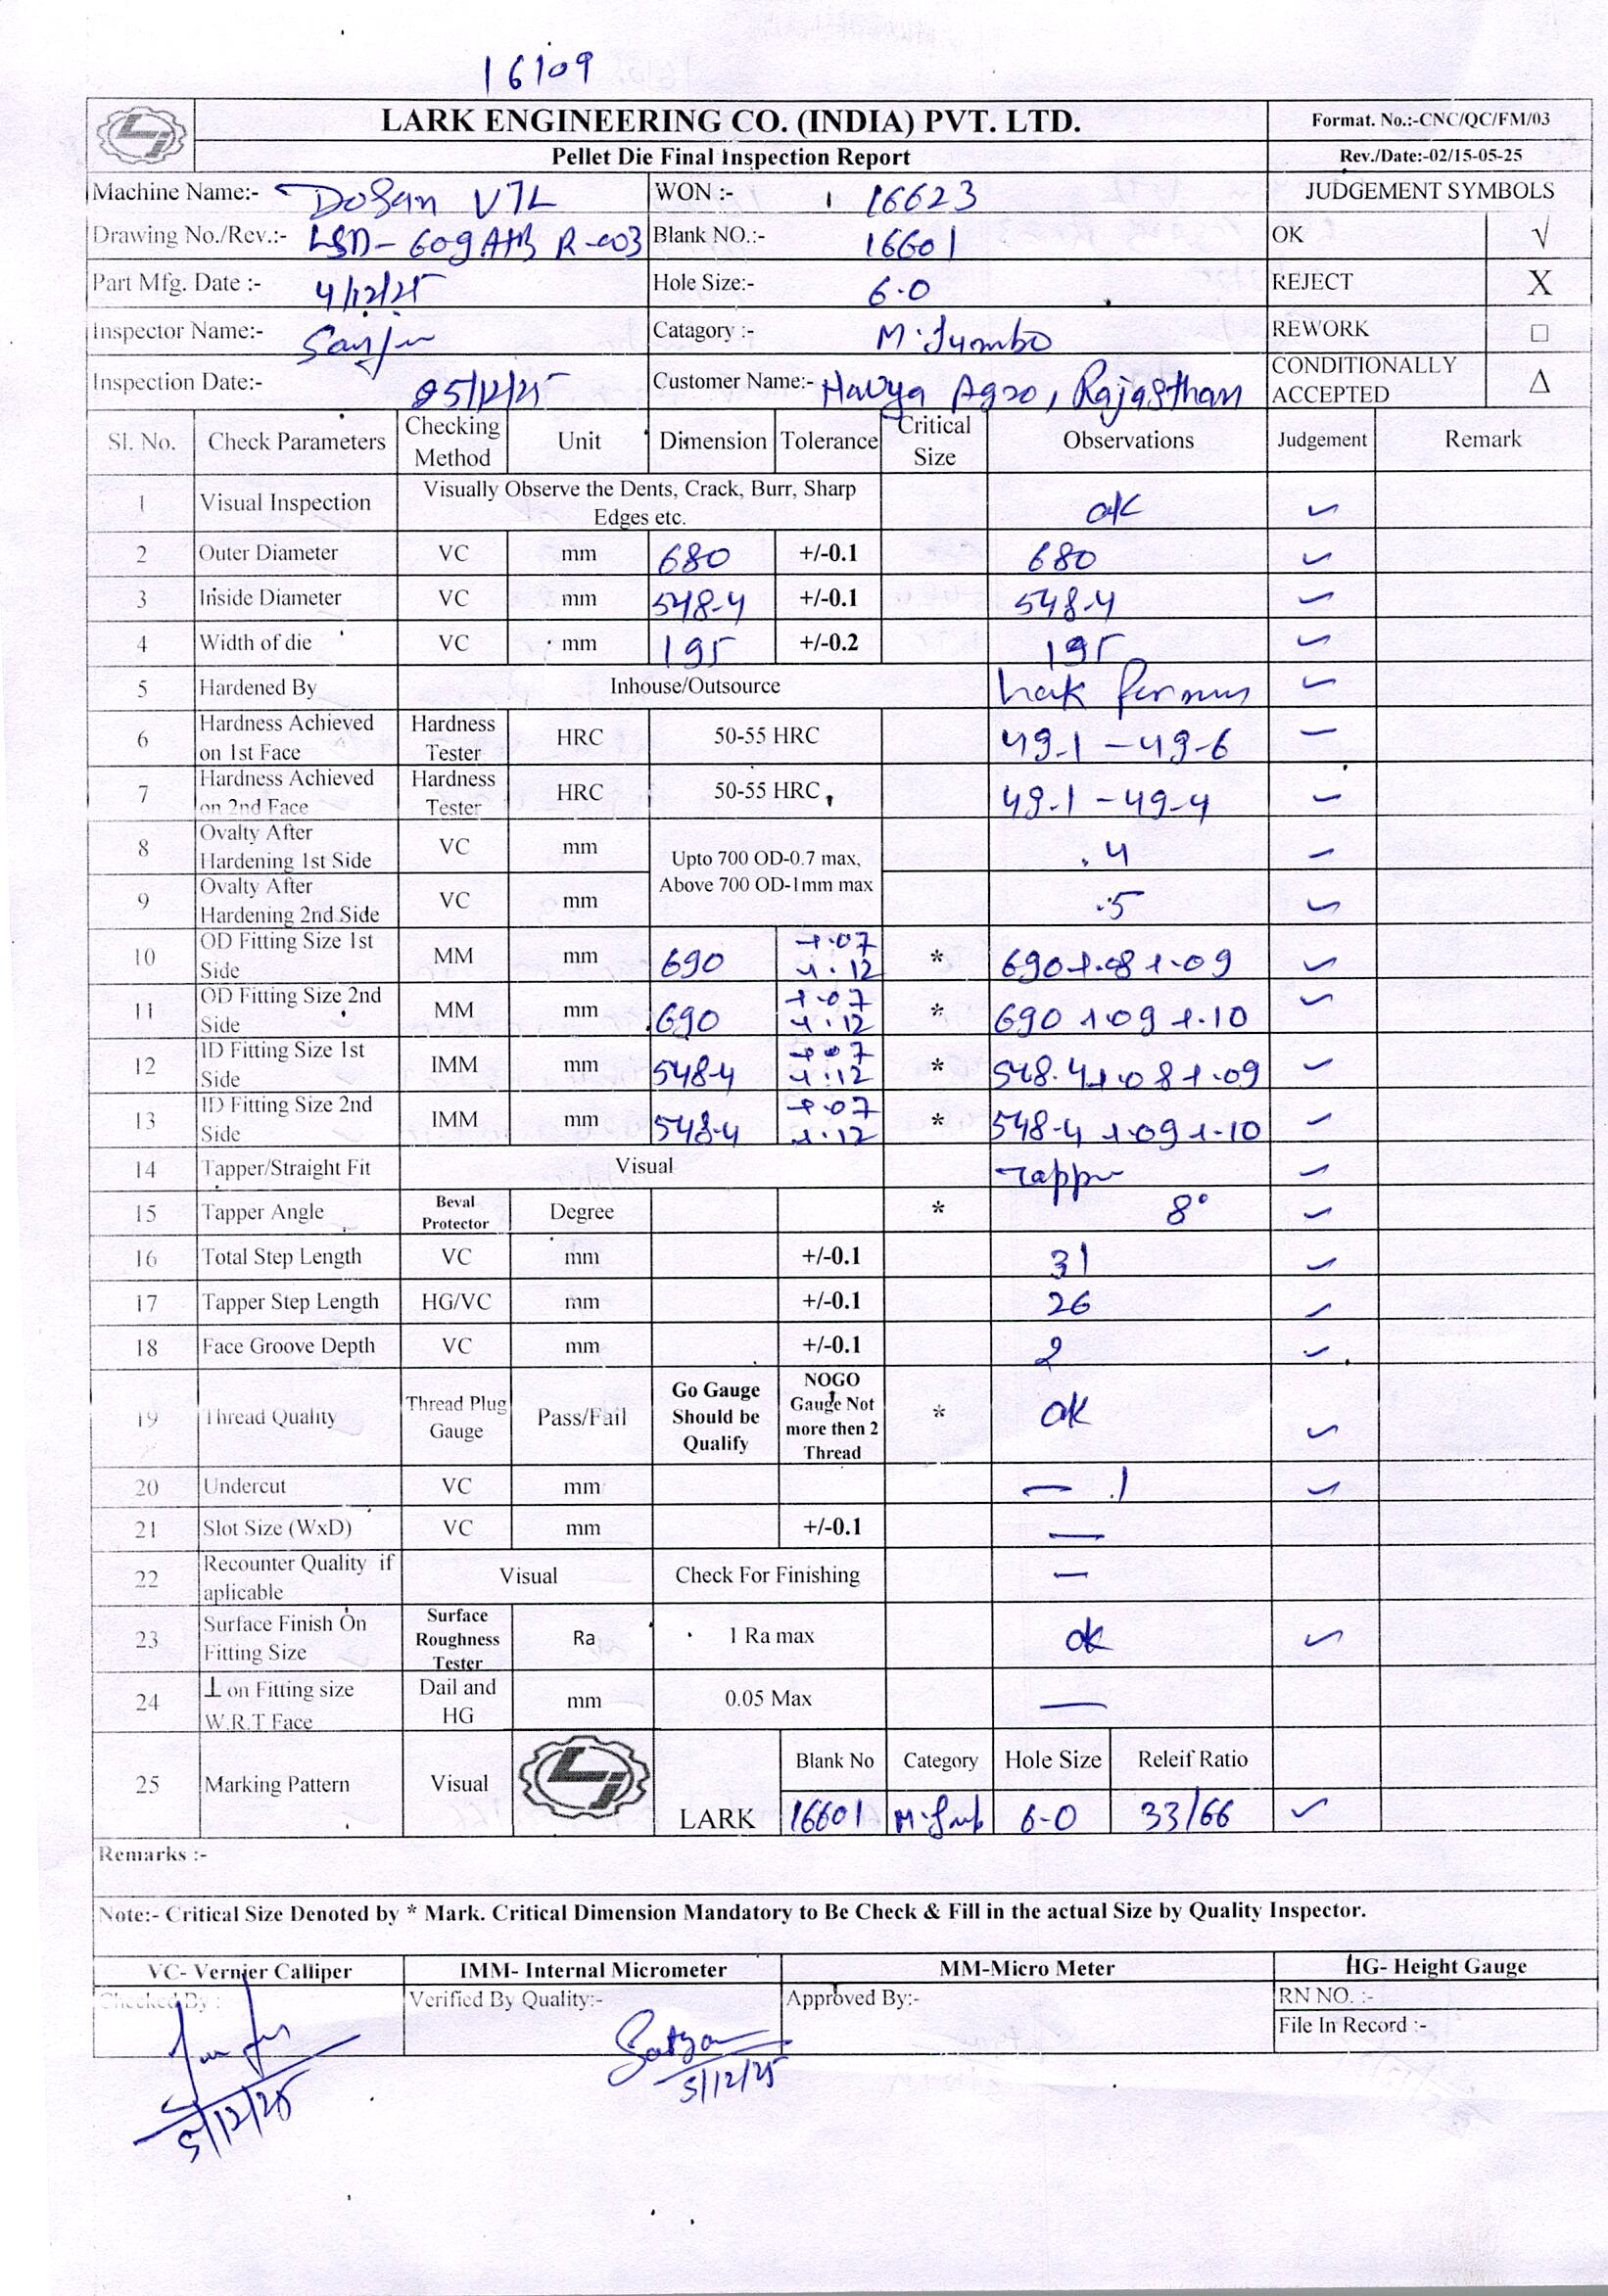 16109
LARK ENGINEERING CO. (INDIA) PVT. LTD. Format. No.:-CNC/QC/FM/03
Pellet Die Final Inspection Report Rev./Date:-02/15-05-25
Machine Name:- DoSan VTL WON :- 16623 JUDGEMENT SYMBOLS
Drawing No./Rev.:- LSD-609AHB R-003 Blank NO.:- 16601 OK √
Part Mfg. Date :- 4/12/25 Hole Size:- 6.0 REJECT X
Inspector Name:- Sanju Catagory :- M.Jumbo REWORK □
Inspection Date:- 05/12/25 Customer Name:- Havya Agro, Rajasthan CONDITIONALLY ACCEPTED Δ
Sl. No. Check Parameters Checking Method Unit Dimension Tolerance Critical Size Observations Judgement Remark
1 Visual Inspection Visually Observe the Dents, Crack, Burr, Sharp Edges etc. ok ✓
2 Outer Diameter VC mm 680 +/-0.1 680 ✓
3 Inside Diameter VC mm 548.4 +/-0.1 548.4 ✓
4 Width of die VC mm 195 +/-0.2 195 ✓
5 Hardened By Inhouse/Outsource ✓
6 Hardness Achieved on 1st Face Hardness Tester HRC 50-55 HRC 49.1 - 49.6 ✓
7 Hardness Achieved on 2nd Face Hardness Tester HRC 50-55 HRC 49.1 - 49.4 ✓
8 Ovalty After Hardening 1st Side VC mm Upto 700 OD-0.7 max, Above 700 OD-1mm max .4 ✓
9 Ovalty After Hardening 2nd Side VC mm .5 ✓
10 OD Fitting Size 1st Side MM mm 690 +.07 +.12 * 690 +.08 +.09 ✓
11 OD Fitting Size 2nd Side MM mm 690 +.07 +.12 * 690 +.09 +.10 ✓
12 ID Fitting Size 1st Side IMM mm 548.4 +.07 +.12 * 548.4 +.08 +.09 ✓
13 ID Fitting Size 2nd Side IMM mm 548.4 +.07 +.12 * 548.4 +.09 +.10 ✓
14 Tapper/Straight Fit Visual Tapper ✓
15 Tapper Angle Beval Protector Degree * 8° ✓
16 Total Step Length VC mm +/-0.1 31 ✓
17 Tapper Step Length HG/VC mm +/-0.1 26 ✓
18 Face Groove Depth VC mm +/-0.1 2 ✓
19 Thread Quality Thread Plug Gauge Pass/Fail Go Gauge Should be Qualify NOGO Gauge Not more then 2 Thread * ok ✓
20 Undercut VC mm — .1 ✓
21 Slot Size (WxD) VC mm +/-0.1 —
22 Recounter Quality if aplicable Visual Check For Finishing —
23 Surface Finish On Fitting Size Surface Roughness Tester Ra 1 Ra max ok ✓
24 ⊥ on Fitting size W.R.T Face Dail and HG mm 0.05 Max —
25 Marking Pattern Visual LARK Blank No Category Hole Size Releif Ratio
16601 M.Jumb 6.0 33/66 ✓
Remarks :-
Note:- Critical Size Denoted by * Mark. Critical Dimension Mandatory to Be Check & Fill in the actual Size by Quality Inspector.
VC- Vernier Calliper IMM- Internal Micrometer MM-Micro Meter HG- Height Gauge
Checked By : Verified By Quality:- Approved By:- RN NO. :-
File In Record :-
Sanju Satyan
5/12/25 5/12/25